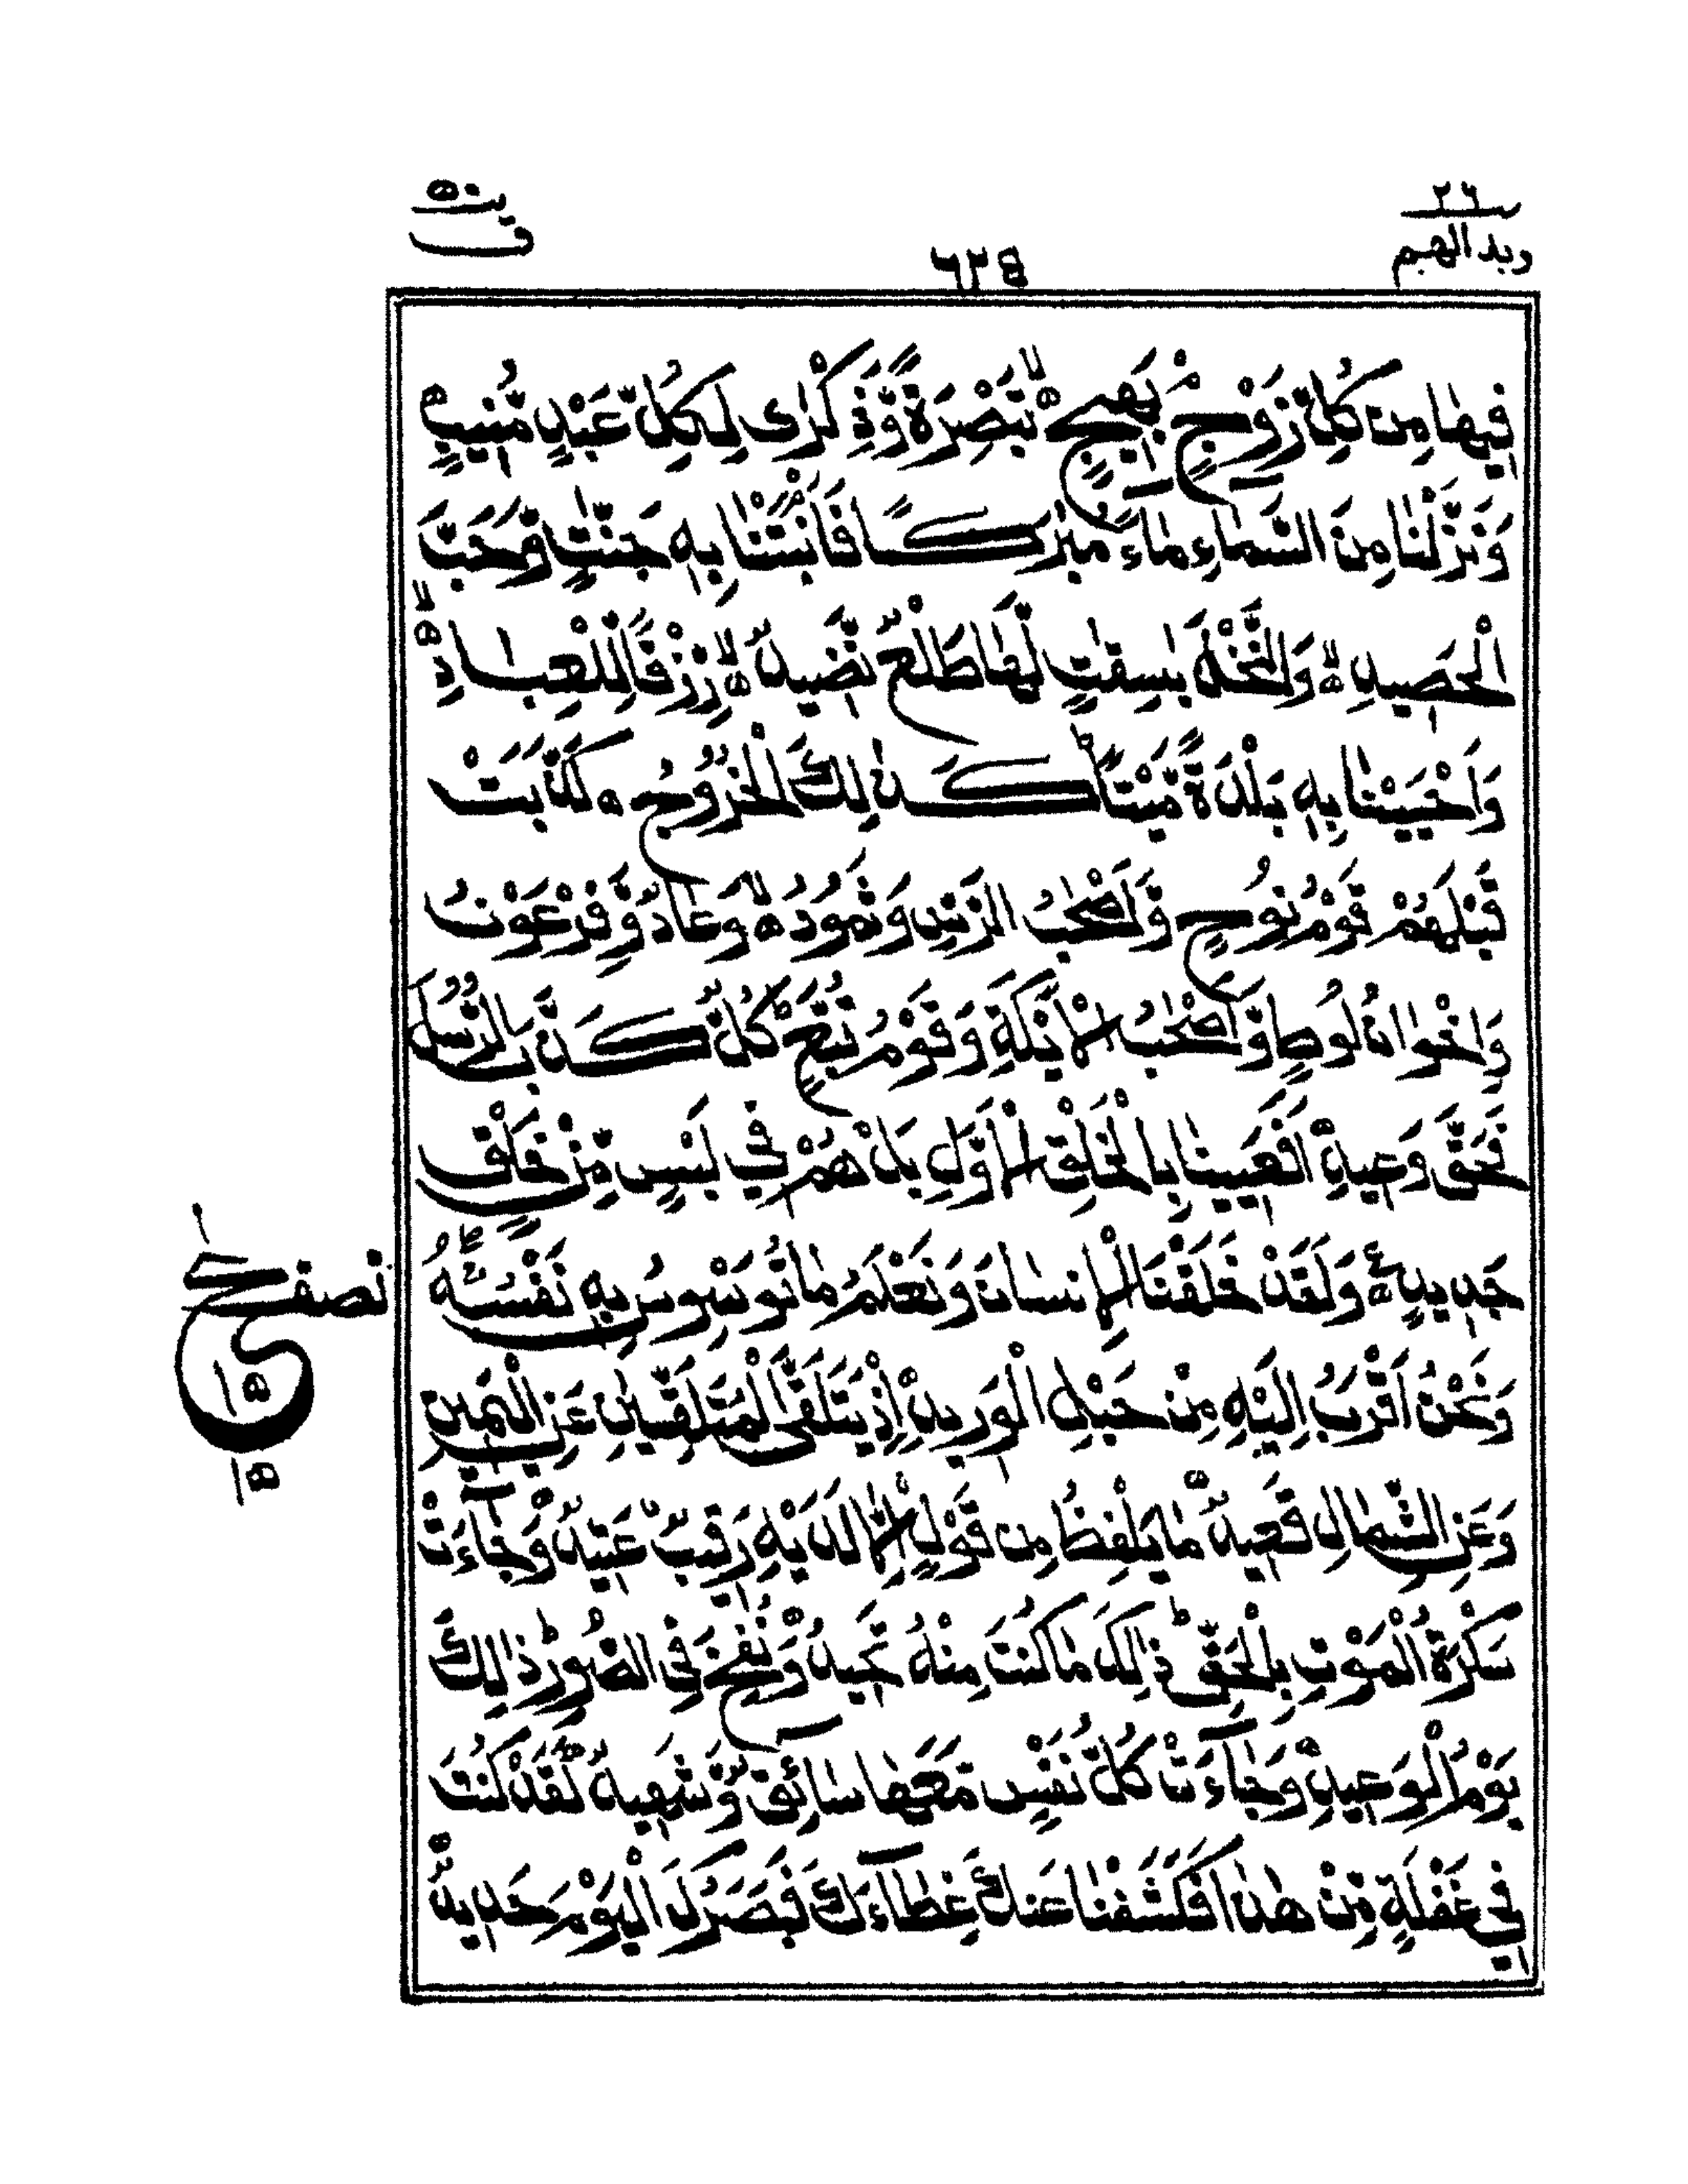 ق ۵۰
۶۲۴
۲۶
فِيهَا مِن كُلِّ زَوْجٍۢ بَهِيجٍ ۙ تَبْصِرَةً وَّذِكْرٰى لِكُلِّ عَبْدٍ مُّنِيبٍ
وَنَزَّلْنَا مِنَ السَّمَاءِ مَاءً مُّبٰرَكًا فَأَنبَتْنَا بِهٖ جَنّٰتٍ وَّحَبَّ
الْحَصِيدِ ۙ وَالنَّخْلَ بٰسِقٰتٍ لَّهَا طَلْعٌ نَّضِيدٌ ۙ رِزْقًا لِّلْعِبَادِ ۙ
وَأَحْيَيْنَا بِهٖ بَلْدَةً مَّيْتًا ؕ كَذٰلِكَ الْخُرُوجُ ۝ كَذَّبَتْ
قَبْلَهُمْ قَوْمُ نُوحٍ وَّأَصْحٰبُ الرَّسِّ وَثَمُودُ ۙ وَعَادٌ وَّفِرْعَوْنُ
وَإِخْوَانُ لُوطٍ وَّأَصْحٰبُ الْأَيْكَةِ وَقَوْمُ تُبَّعٍ ؕ كُلٌّ كَذَّبَ الرُّسُلَ
فَحَقَّ وَعِيدِ أَفَعَيِينَا بِالْخَلْقِ الْأَوَّلِ بَلْ هُمْ فِي لَبْسٍ مِّنْ خَلْقٍ
جَدِيدٍ ع وَلَقَدْ خَلَقْنَا الْإِنسَانَ وَنَعْلَمُ مَا تُوَسْوِسُ بِهٖ نَفْسُهٗ
وَنَحْنُ أَقْرَبُ إِلَيْهِ مِنْ حَبْلِ الْوَرِيدِ إِذْ يَتَلَقَّى الْمُتَلَقِّيٰنِ عَنِ الْيَمِينِ
وَعَنِ الشِّمَالِ قَعِيدٌ مَا يَلْفِظُ مِن قَوْلٍ إِلَّا لَدَيْهِ رَقِيبٌ عَتِيدٌ وَجَاءَتْ
سَكْرَةُ الْمَوْتِ بِالْحَقِّ ؕ ذٰلِكَ مَا كُنتَ مِنْهُ تَحِيدُ وَنُفِخَ فِي الصُّورِ ؕ ذٰلِكَ
يَوْمُ الْوَعِيدِ وَجَآءَتْ كُلُّ نَفْسٍ مَّعَهَا سَائِقٌ وَّشَهِيدٌ لَّقَدْ كُنتَ
فِي غَفْلَةٍ مِّنْ هٰذَا فَكَشَفْنَا عَنكَ غِطَآءَكَ فَبَصَرُكَ الْيَوْمَ حَدِيدٌ
ع
۱۵
۱۵